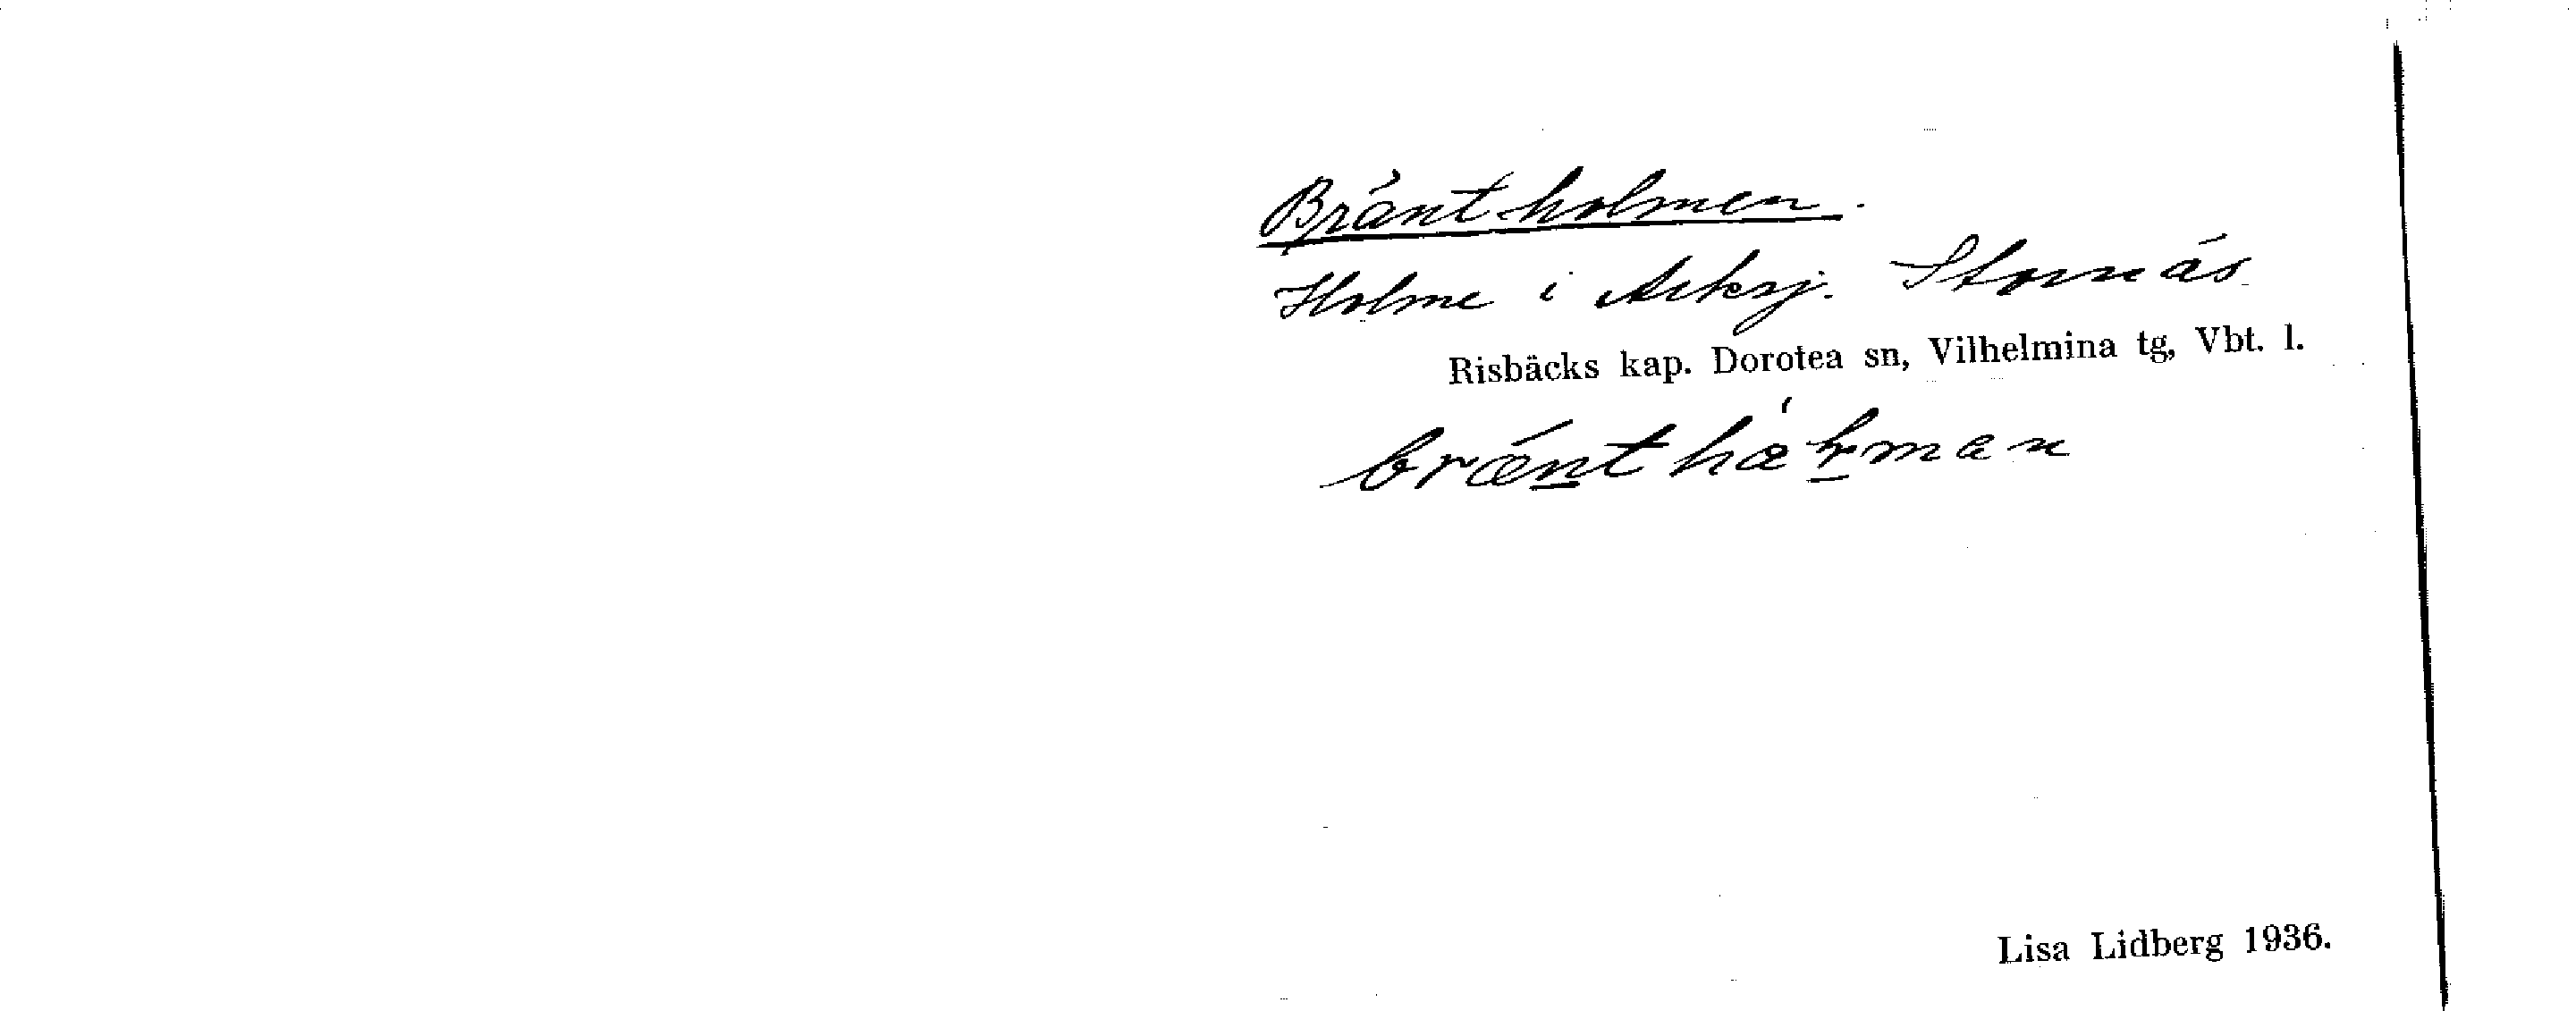 Bräntholmen.
Holme i Arksj. Stornäs
Risbäcks kap. Dorotea sn, Vilhelmina tg, Vbt. l.
Lisa Lidberg 1936.